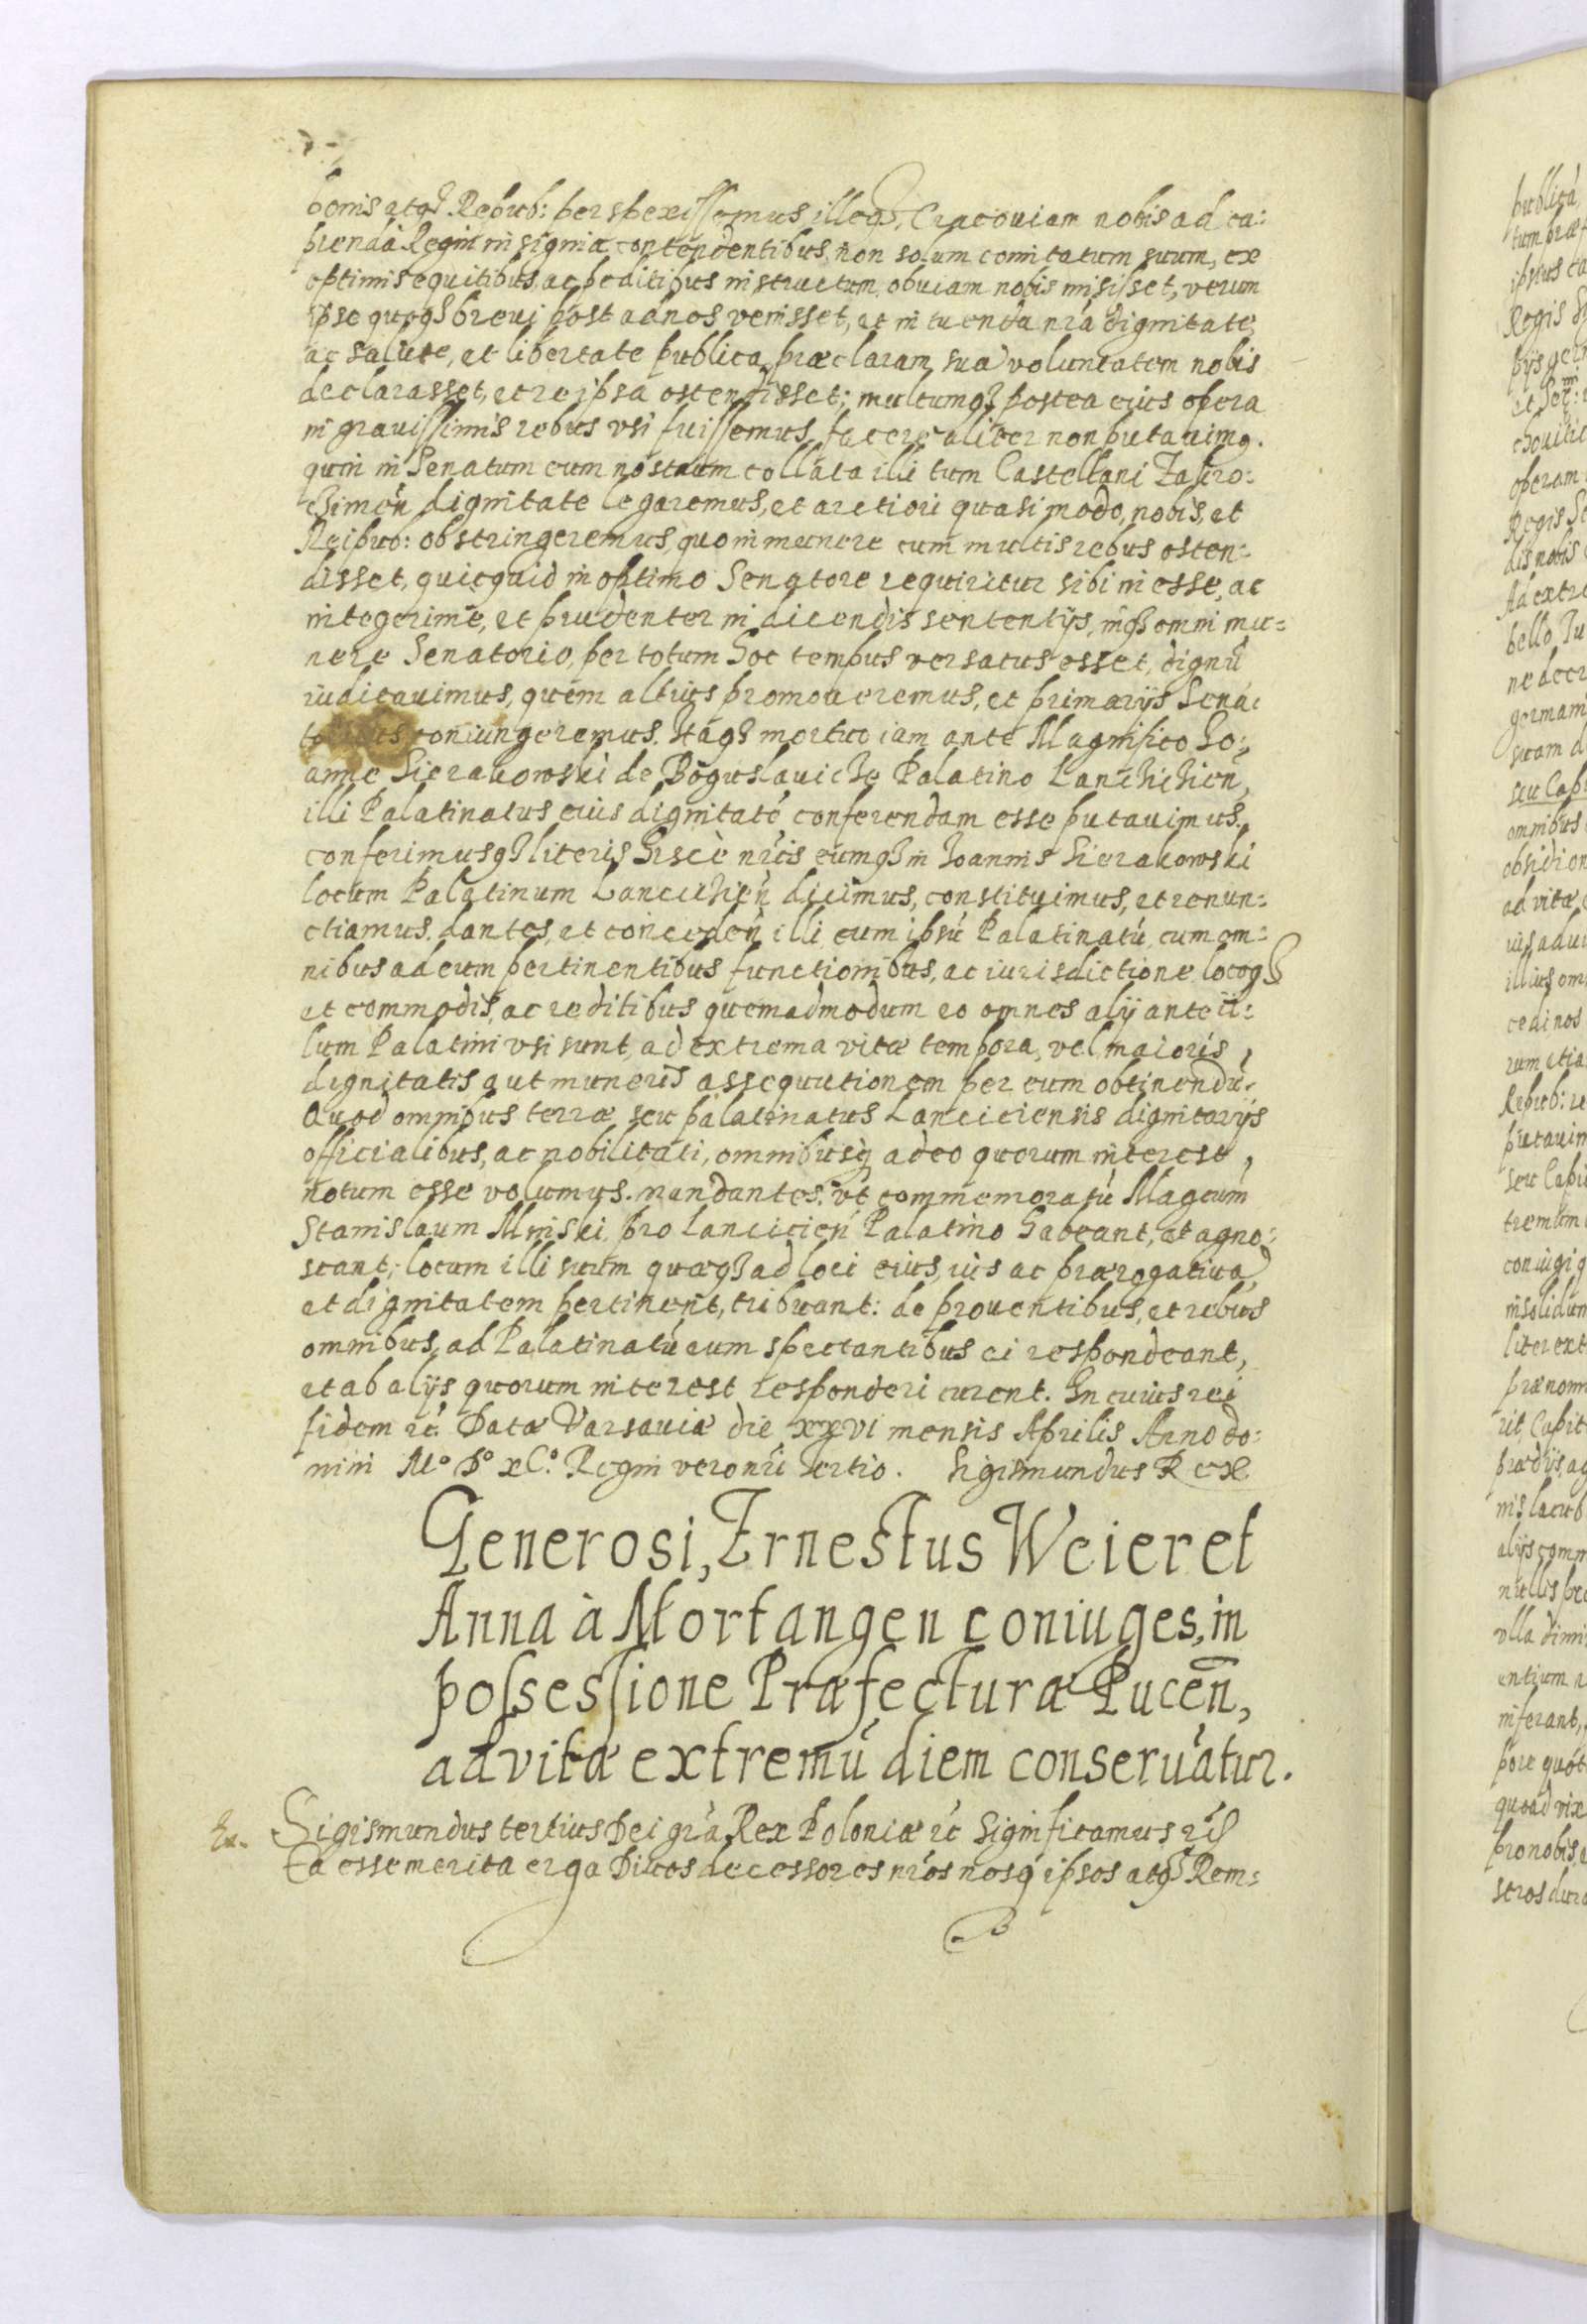 bonis atq3 Repub: perspexissemus, illeq3, Cracoviam nobis ad ca:
pienda Regni insignia contendentibus, non solum comitatum suum, ex
optimis equitibus, ac peditibus instructum, obuiam nobis misisset, verum
ipse quoq3 breui post ad nos venisset, et in tuenda nr̃a dignitate,
ac salute, et libertate publica, præclaram suã voluntatem nobis
declarasset, et re ipsa ostendisset; multumq3 postea eius opera
in grauissimis rebus vsi fuissemus, facere aliter non putauimq.
quin in Senatum eum nostrum collata illi tum Castellani Zakro:
czimeñ dignitate legaremus, et arctiori quasi modo, nobis, et
Reipub: obstringeremus, quo in munere cum multis rebus osten:
disset, quicquid in optimo Senatore requiritur sibi inesse, ac
integerimè, et prudenter in dicendis sententijs, inq3 omni mu=
nere Senatorio, per totum hoc tempus versatus esset, dignũ
iudicauimus, quem altius promoueremus, et primarijs Sena:
toribus coniungeremus. Itaq3 mortuo iam ante Magnifico Jo:
anne Sierakowski de Boguslauicze Palatino Lanczicien,
illi Palatinatus eius dignitatẽ conferendam esse putauimus.
conferimusq3 literis hisce nr̃is eumq3 in Joannis Sierakowski
locum Palatinum Lanciczieñ dicimus, constituimus, et renun:
ctiamus. dantes, et concedeñ illi eum ipsũ Palatinatũ, cum om:
nibus ad eum pertinentibus functionibus, ac iurisdictione locoq3
et commodis, ac reditibus quemadmodum eo omnes alij ante il:
lum Palatini vsi sunt, ad extrema vitæ tempora, vel maioris,
dignitatis aut muneris assequutionem per eum obtinendũ.
Quod omnibus terræ seu palatinatus Lanciciensis dignitarijs
officialibus, ac nobilitati, omnibusq adeo quorum interest,
notum esse volumus. mandantes. vt commemoratũ Magcum
Stanislaum Minski pro Lancicieñ Palatino habeant, et agno:
scant; locum illi suum quæq3 ad loci eius, ius ac prærogatiuã,
et dignitatem pertinent, tribuant: de prouentibus, et rebus
omnibus, ad Palatinatũ eum spectantibus ei respondeant,
et ab alijs quorum interest responderi curent. In cuius rei
fidem rẽ. Datæ Varsauiæ die xxvi mensis Aprilis Anno do:
mini Mº Dº xCº. Regni vero nr̃i tertio. Sigismundus Rex
Generosi, Ernestus Weier et
Anna à Mortangen coniuges, in
possessione Præfecturæ Puceñ,
ad vitæ extremũ diem conseruãtur.
Ex. Sigismundus tertius Dei gr̃a Rex Poloniæ rẽ Significamus rẽ
Ea esse merita erga Diuos decessores nr̃os nosq ipsos atq3 Rem: